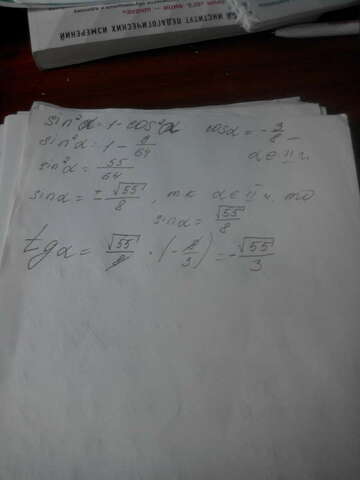 ИНСТИТУТ ПЕДАГОГИЧЕСКИХ ИЗМЕРЕНИЙ
sin²α = 1 - cos²α cosα = -3/8 -
sin²α = 1 - 9/64 α ∈ II ч.
sin²α = 55/64
sinα = ± √55/8 , т к α ∈ II ч. то
sinα = √55/8
tgα = √55/8 · (-8/3) = -√55/3